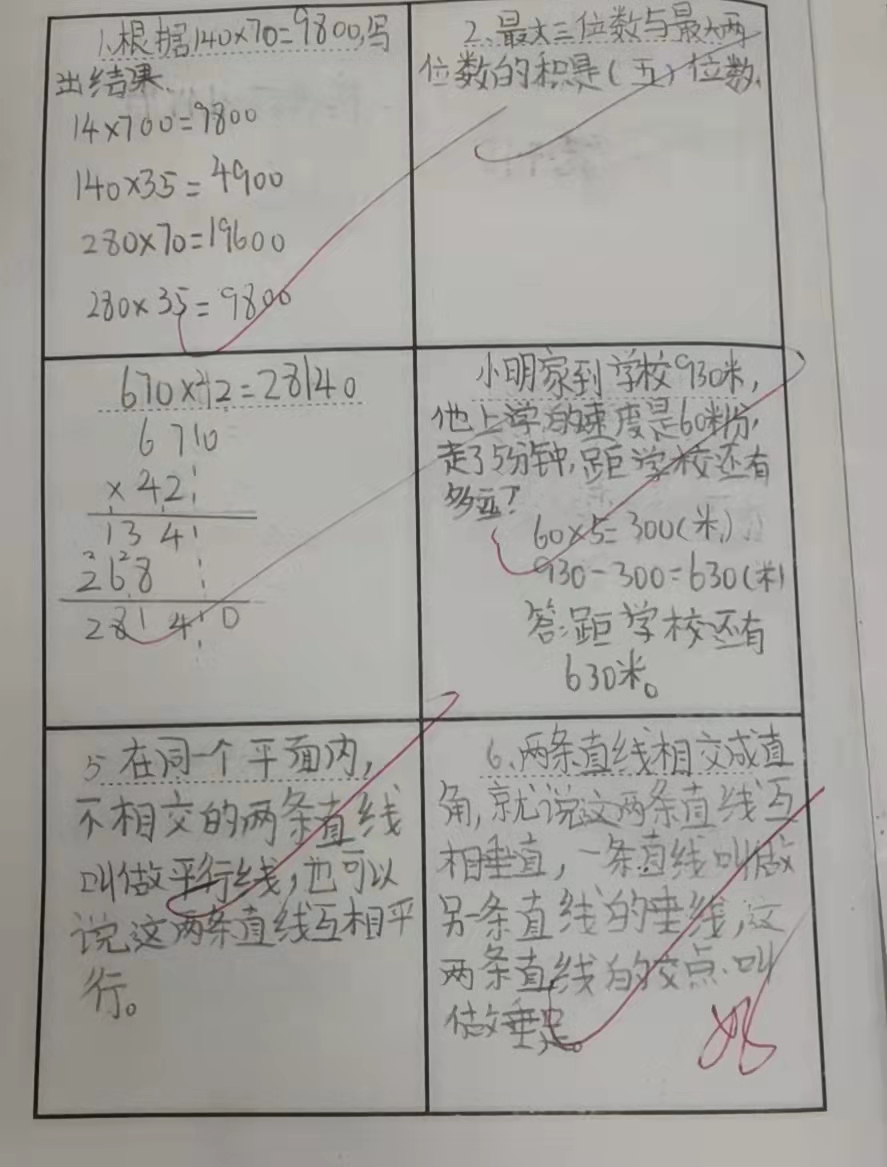 1、根据140×70=9800,写
出结果.
14×700=9800
140×35=4900
280×70=19600
280×35=9800
2、最大三位数与最大两
位数的积是(五)位数.
670×42=28140
670
×42
134
268
28140
小明家到学校930米,
他上学的速度是60米/分,
走了5分钟,距学校还有
多远?
60×5=300(米)
930-300=630(米)
答:距学校还有
630米。
5 在同一个平面内,
不相交的两条直线
叫做平行线,也可以
说这两条直线互相平
行。
6、两条直线相交成直
角,就说这两条直线互
相垂直,一条直线叫做
另一条直线的垂线,这
两条直线的交点叫
做垂足。